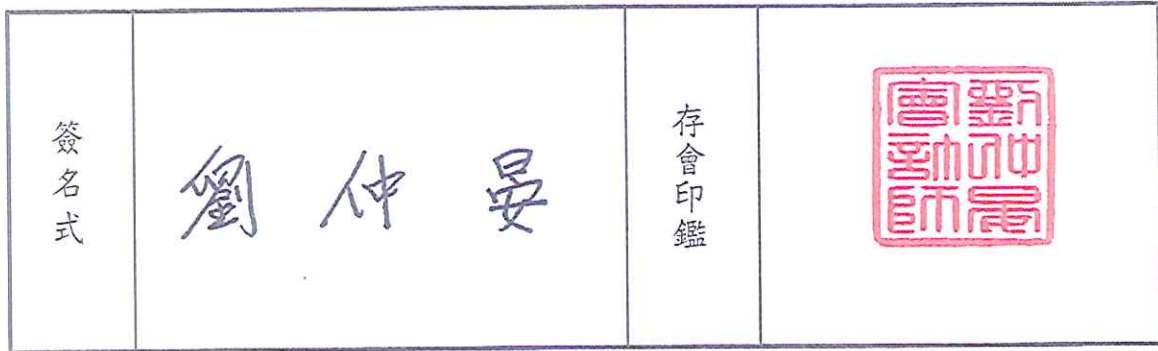 簽名式
劉仲晏
存會印鑑
劉仲晏
會計師